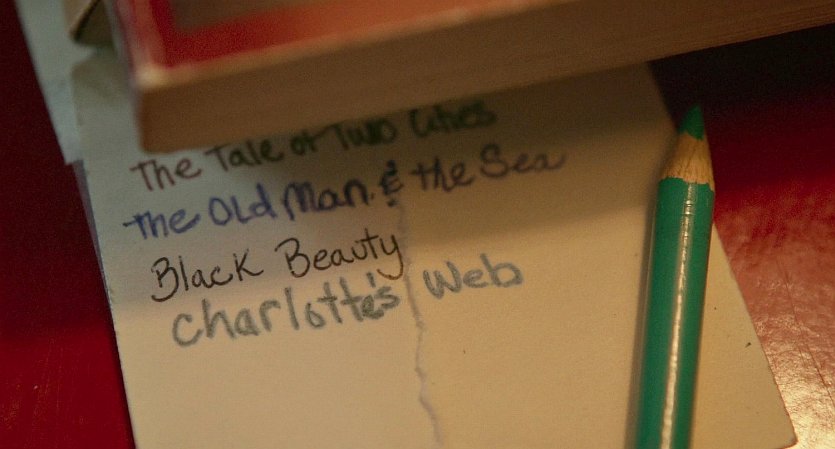 The Tale of Two Cities
the Old Man & the Sea
Black Beauty
Charlotte's Web